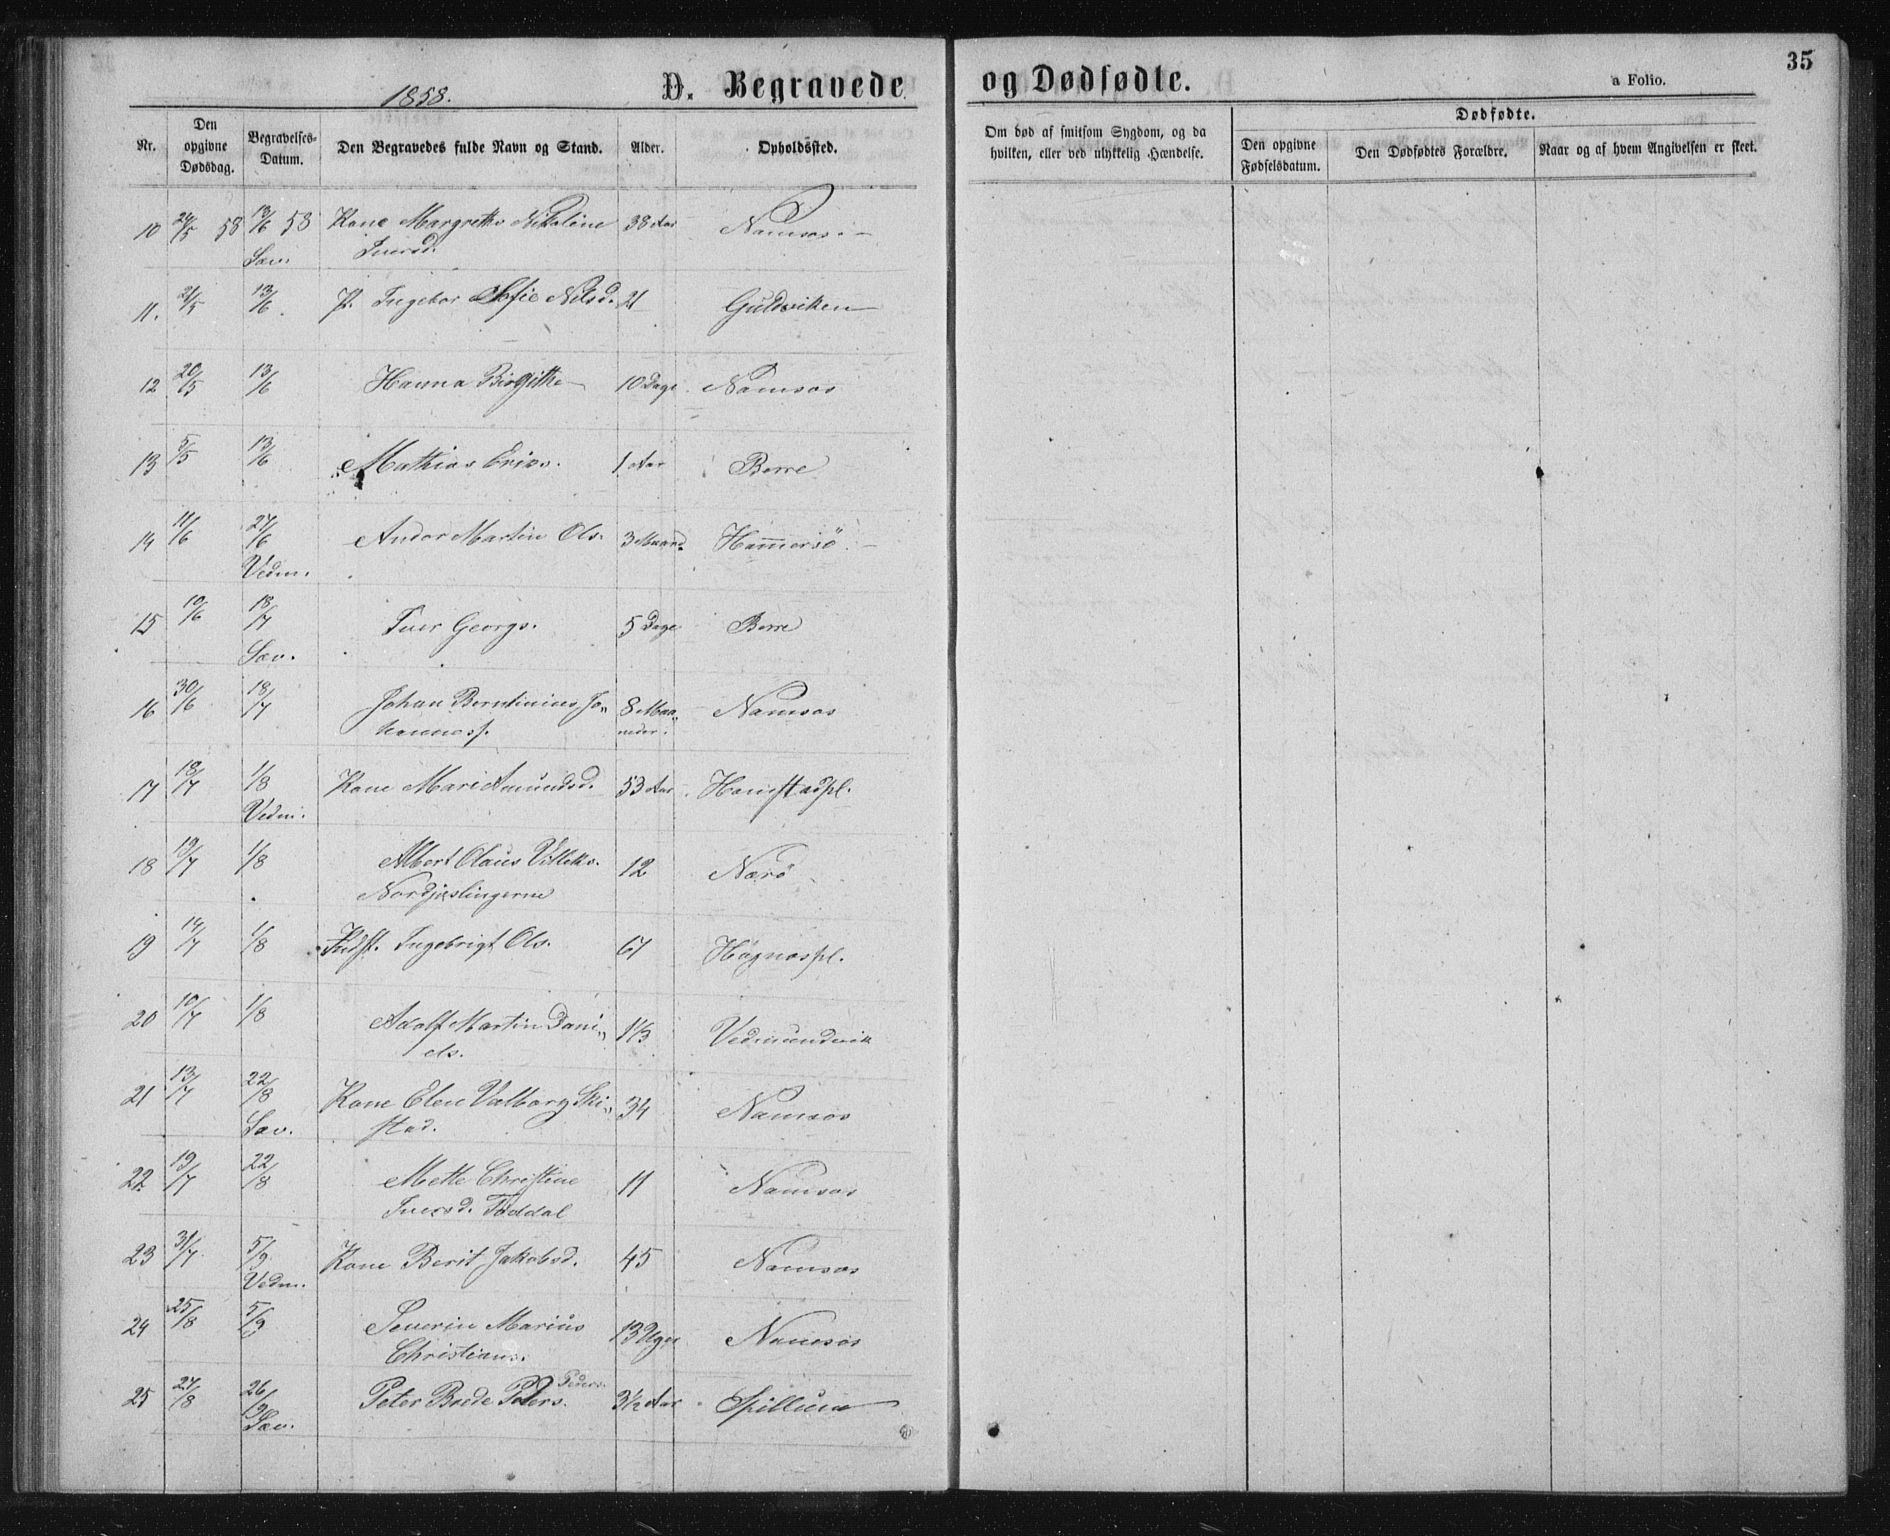 1858.
D. Begravede
og Dødfødte.
a Folio.
35
Nr.
Den opgivne Dødsdag.
Begravelses-Datum.
Den Begravedes fulde Navn og Stand.
Alder.
Opholdssted.
Om død af smitsom Sygdom, og da hvilken, eller ved ulykkelig Hændelse.
Dødfødte.
Den opgivne Fødselsdatum.
Den Dødfødtes Forældre.
Naar og af hvem Angivelsen er skeet.
10 24/5 58 13/6 58 Kone Margrethe Nikoline 38 Aar Namsos
Sæv. Iversd.
11. 21/5 13/6 P. Ingebor Sofie Nilsd. 21 Guldviken
12 20/5 13/6 Hanna Birgitte 10 Dage Namsos
13 5/5 13/6 Mathias Eriks. 1 Aar Borre
14 11/6 27/6 Andor Martin Ols. 3 Maand. Hammersö
Vedm.
15 10/6 18/7 Iver Georgs. 5 Dage Borre
Sæv.
16 30/6 18/7 Johan Berntinius Jo- 8 Maa-
hanness. neder. Namsos
17 18/7 1/8 Kone Marit Amundsd. 53 Aar Hanistadpl.
Vedm.
18 19/7 1/8 Albert Olaus Villeks. 12 Nærö
Nordgjeslingerne
19 14/7 1/8 Indst. Ingebrigt Ols. 67 Högnæspl.
20 10/7 1/8 Adolf Martin Dani- 1 1/3 Vedmundvik
els.
21 13/7 22/8 Kone Elen Valborg Ski- 34 Namsos
Sæv. stad.
22 19/7 22/8 Mette Christine 11 Namsos
Iversd. Töddal
23 31/7 5/9 Kone Berit Jakobsd. 45 Namsos
Vedm.
24 25/8 5/9 Severin Marius 13 Uger Namsos
Christians.
25 27/8 26/9 Peter Brede Peders. 3 1/2 Aar Spillum
Sæv.